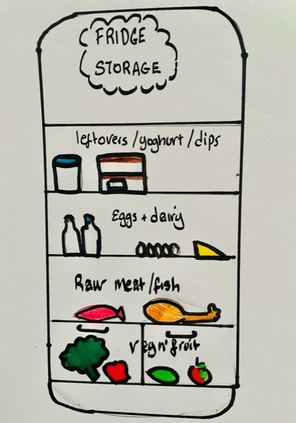 FRIDGE
STORAGE
leftovers/yoghurt/dips
Eggs + dairy
Raw meat/fish
Veg n' fruit